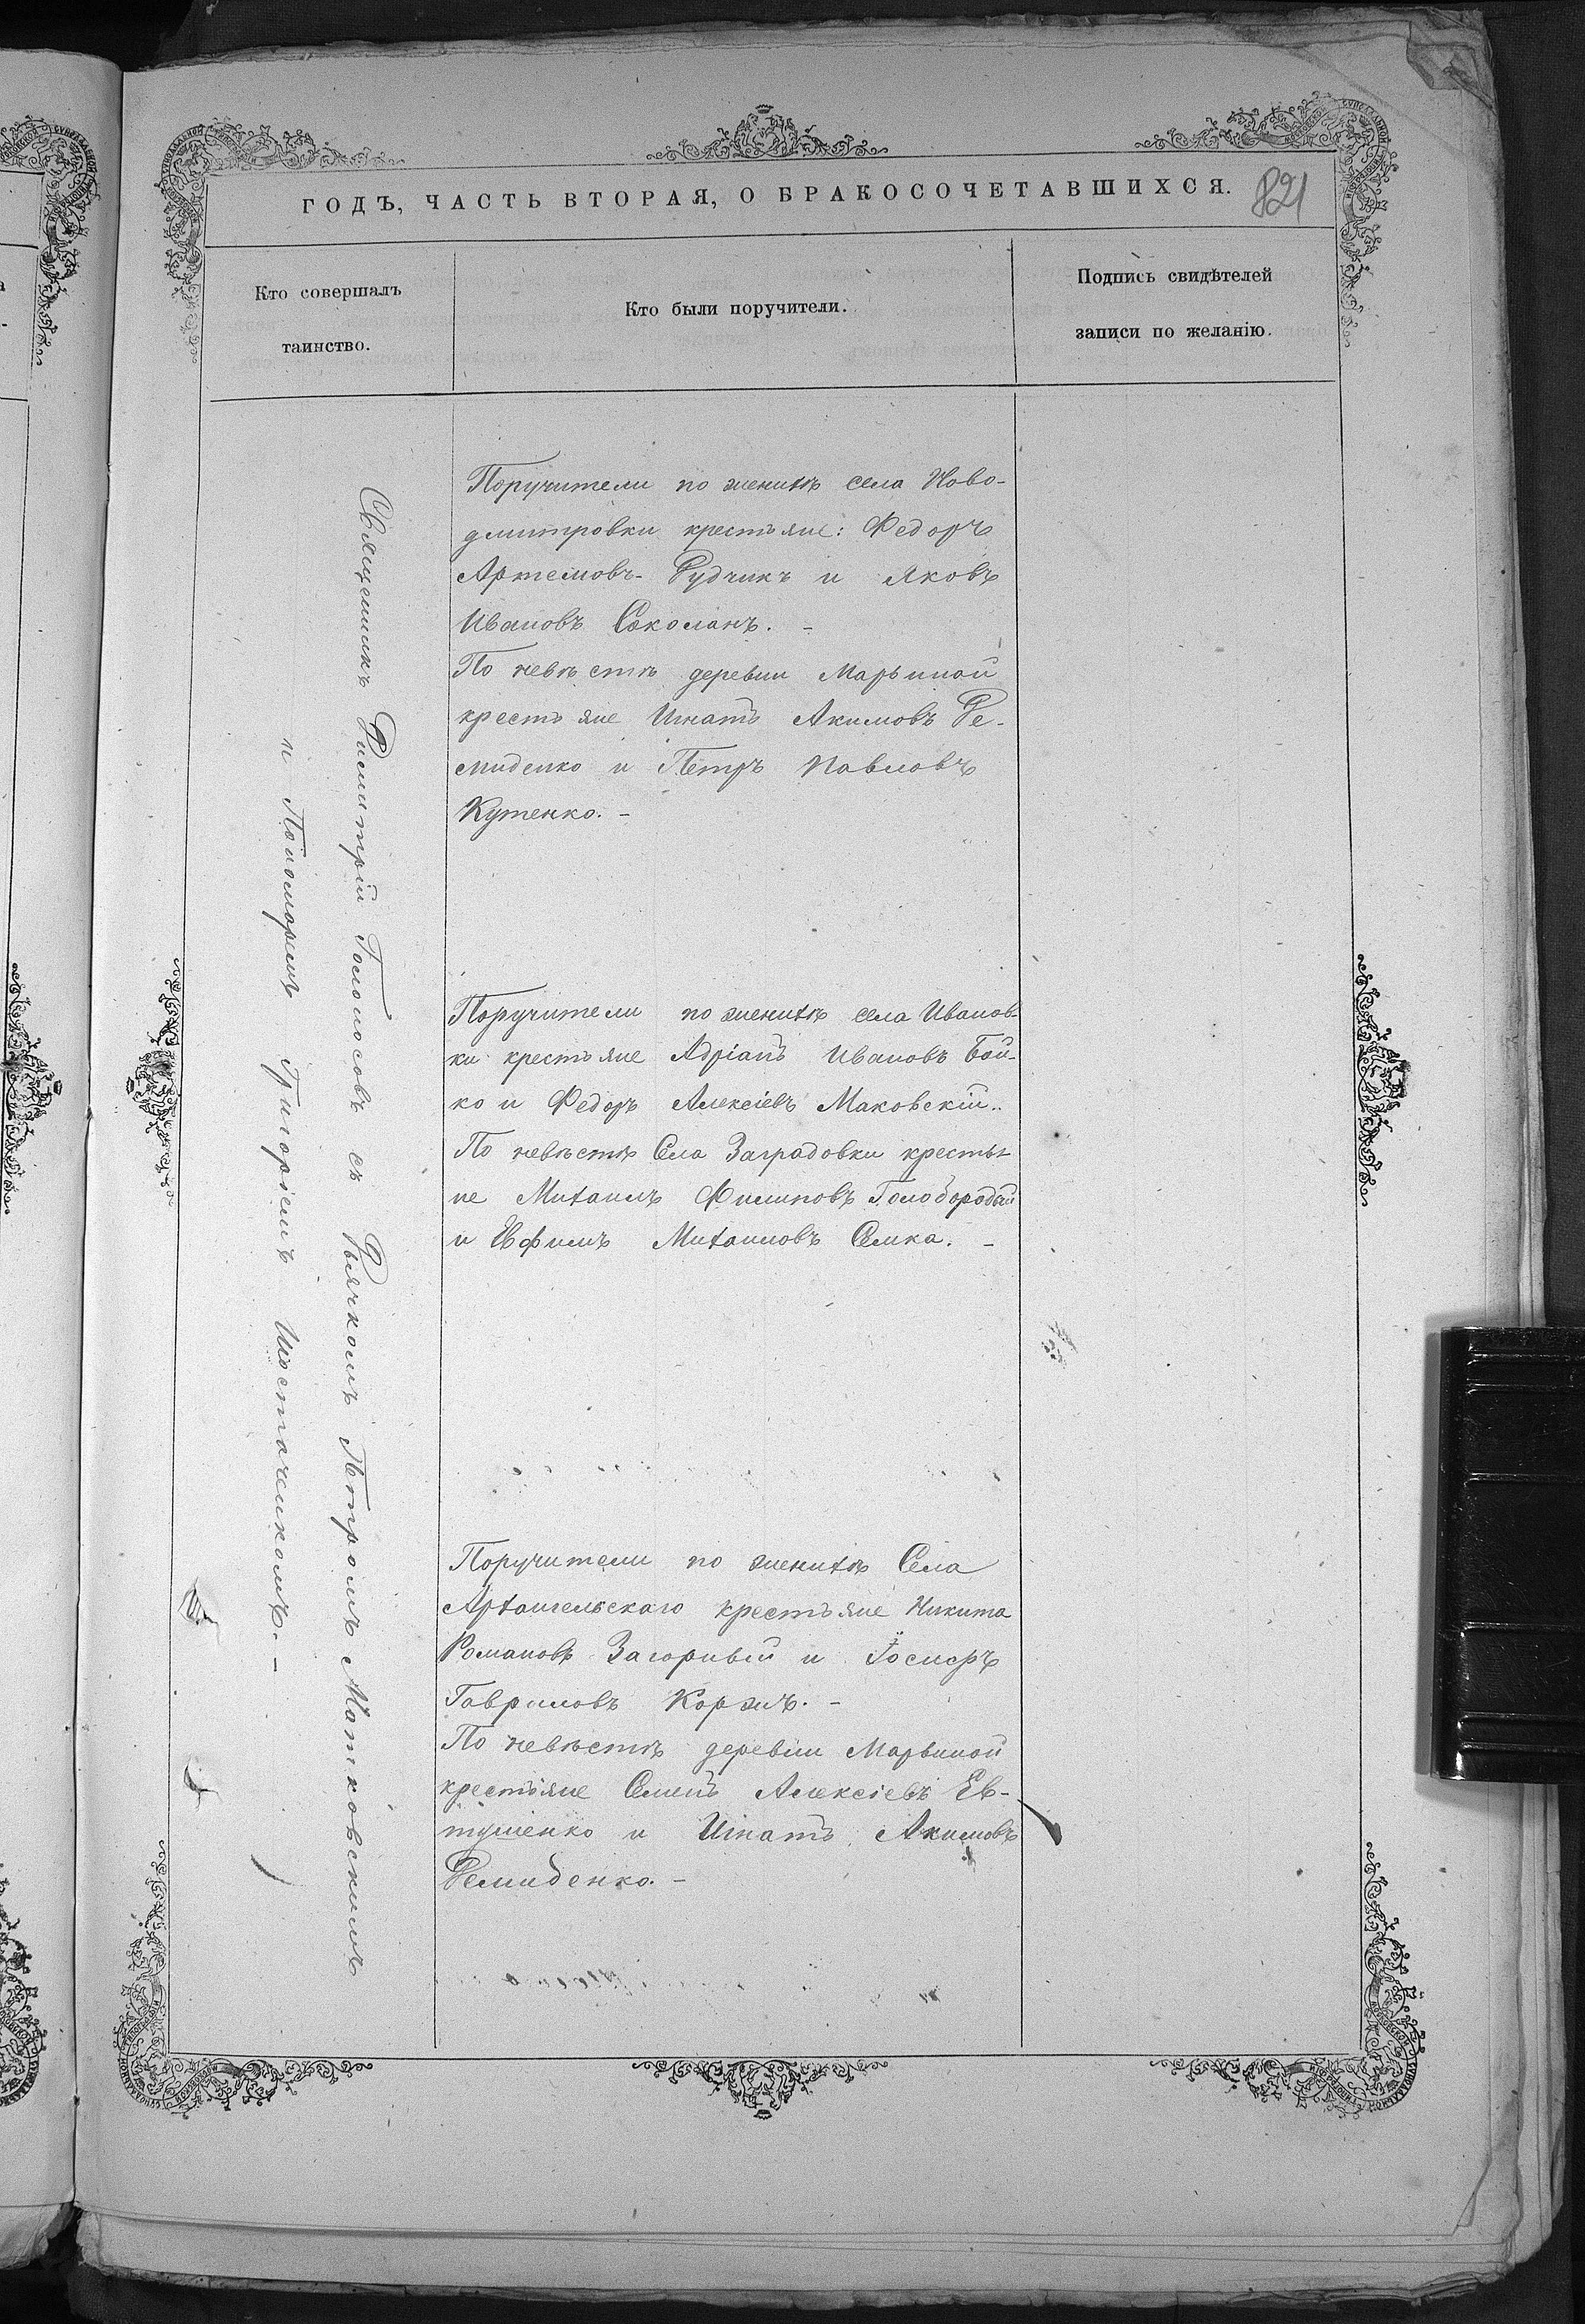 ГОДЪ, ЧАСТЬ ВТОРАЯ, О БРАКОСОЧЕТАВШИХСЯ.
821
Кто совершалъ
таинство.
Кто были поручители.
Подпись свидѣтелей
записи по желанію.
Священникъ Димитрій Голоносовъ съ Дьячкомъ Петромъ Матковскимъ
и Пономаремъ Григоріемъ Шостаченкомъ. –
Поручители по женихѣ села Ново-
дмитровки крестьяне: Федоръ
Артемовъ Дудчикъ и Яковъ
Ивановъ Соколанъ. –
По невѣстѣ деревни Марьиной
крестьяне Игнатъ Акимовъ Де-
миденко и Петръ Павловъ
Кутенко. –
Поручители по женихѣ села Иванов-
ки крестьяне Адріанъ Ивановъ Бой-
ко и Федоръ Алексіевъ Маковскій..
По невѣстѣ Села Заградовки крестья-
не Михаилъ Филиповъ Голобородый
и Евфимъ Михаиловъ Семка. –
Поручители по женихѣ Села
Архангельскаго крестьяне Никита
Романовъ Загоривый и Іосифъ
Гавриловъ Коржъ. –
По невѣстѣ деревни Марьиной
крестьяне Семенъ Алексіевъ Ев-
тушенко и Игнатъ Акимовъ
Демиденко. –